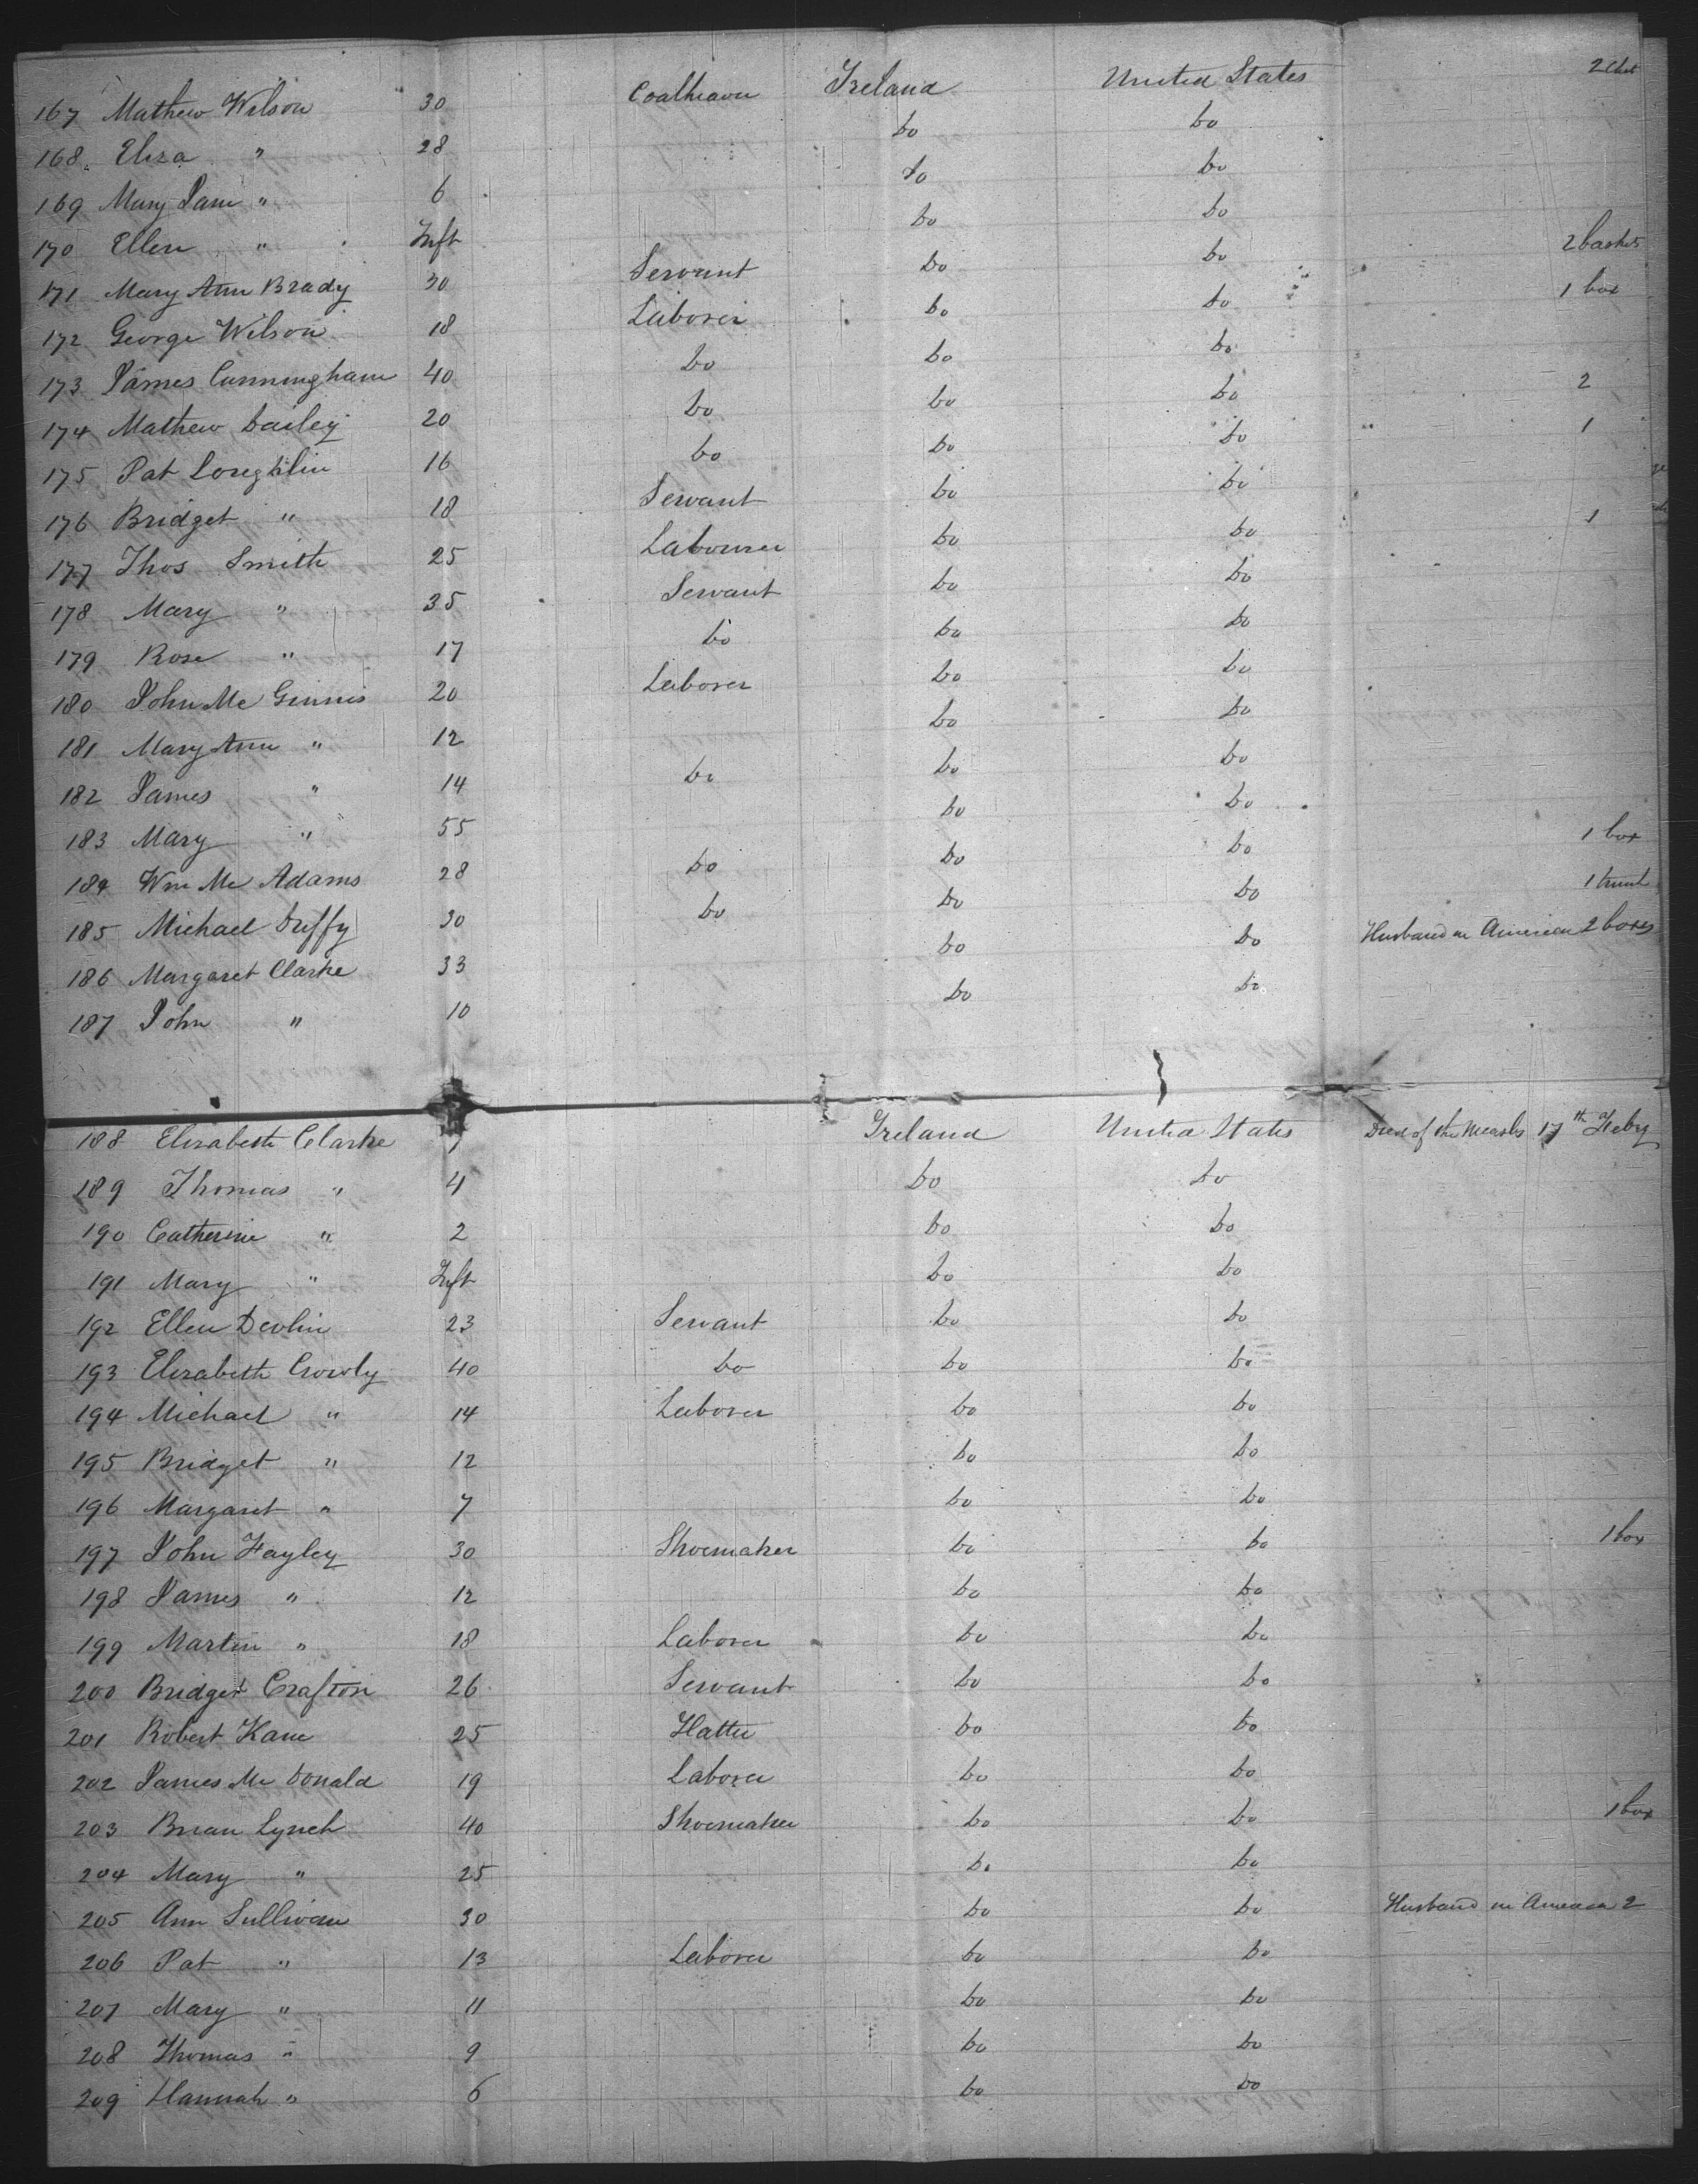 167 Mathew Wilson 30 Coalheaver Ireland United States 2 Chst
168 Eliza " 28 do do
169 Mary Jane " 6 do do
170 Ellen " Inft do do
171 Mary Ann Brady 30 Servant do do 2 baskets
172 George Wilson 18 Laborer do do 1 box
173 James Cunningham 40 do do do
174 Mathew Dailey 20 do do do 2
175 Pat Loughlin 16 do do do 1
176 Bridget " 18 Servant do do
177 Thos Smith 25 Labourer do do 1
178 Mary " 35 Servant do do
179 Rose " 17 do do do
180 John Mc Ginnis 20 Laborer do do
181 Mary Ann " 12 do do
182 James " 14 do do do
183 Mary " 55 do do
184 Wm Mc Adams 28 do do do 1 box
185 Michael Duffy 30 do do do 1 trunk
186 Margaret Clarke 33 do do Husband in America 2 boxes
187 John " 10 do do
188 Elizabeth Clarke Ireland United States Died of the Measles 17th Feby
189 Thomas " 4 do do
190 Catherine " 2 do do
191 Mary " Inft do do
192 Ellen Devlin 23 Servant do do
193 Elizabeth Crowly 40 do do do
194 Michael " 14 Laborer do do
195 Bridget " 12 do do
196 Margaret " 7 do do
197 John Hayley 30 Shoemaker do do 1 box
198 James " 12 do do
199 Martin " 18 Laborer do do
200 Bridget Crafton 26 Servant do do
201 Robert Kane 25 Hatter do do
202 James Mc Donald 19 Laborer do do
203 Brian Lynch 40 Shoemaker do do 1 box
204 Mary " 25 do do
205 Ann Sullivan 30 do do Husband in America 2
206 Pat " 13 Laborer do do
207 Mary " 11 do do
208 Thomas " 9 do do
209 Hannah " 6 do do